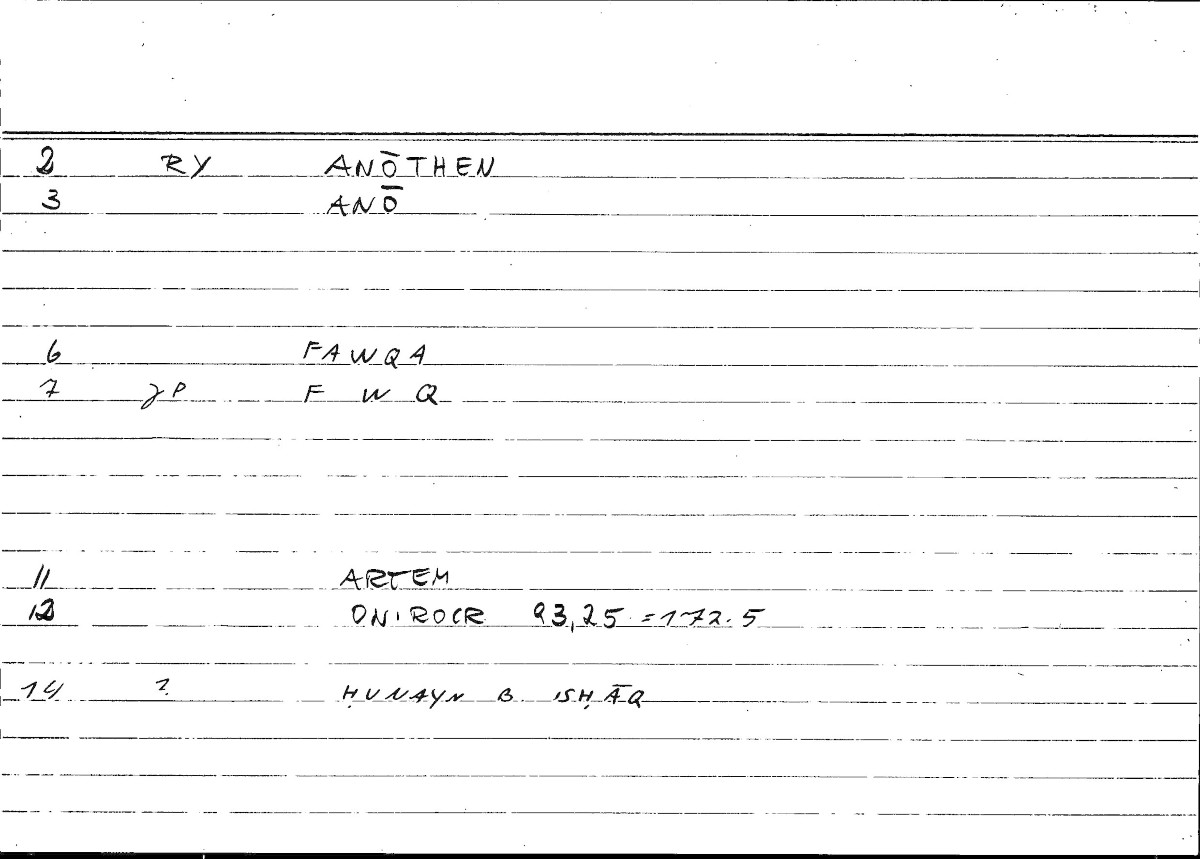 2 RY ANŌTHEN
3 ANŌ
6 FAWQA
7 JP F W Q
11 ARTEM
12 ONIROCR 93,25 = 172.5
14 ? ḤUNAYN B ISḤĀQ